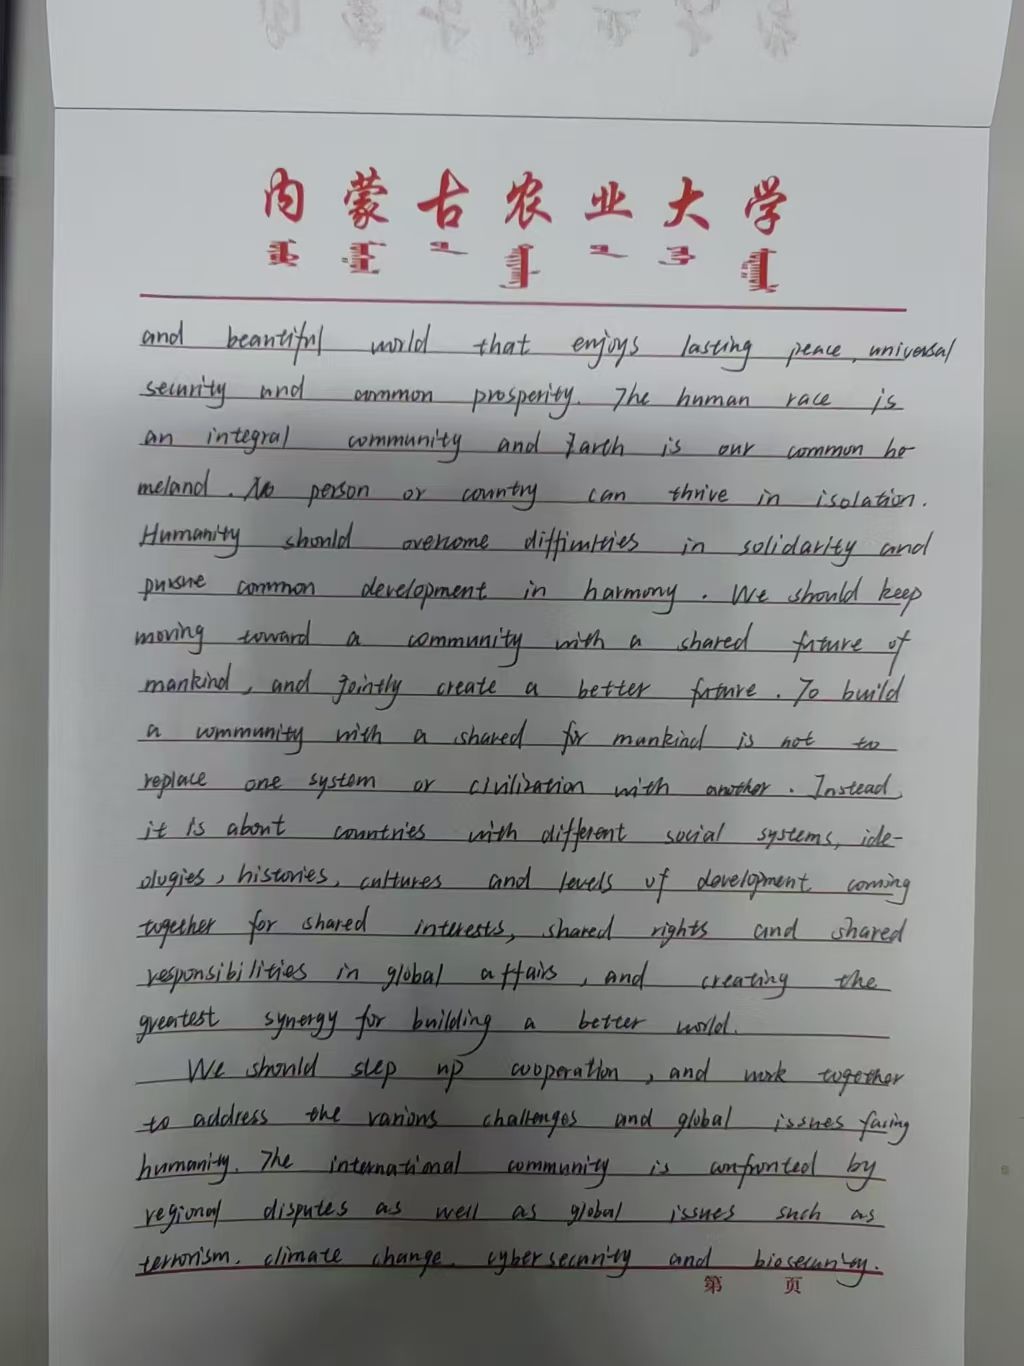 内蒙古农业大学
and beautiful world that enjoys lasting peace, universal
security and common prosperity. The human race is
an integral community and Earth is our common ho-
meland. No person or country can thrive in isolation.
Humanity should overcome difficulties in solidarity and
pursue common development in harmony. We should keep
moving toward a community with a shared future of
mankind, and jointly create a better future. To build
a community with a shared for mankind is not to
replace one system or civilization with another. Instead,
it is about countries with different social systems, ide-
ologies, histories, cultures and levels of development coming
together for shared interests, shared rights and shared
responsibilities in global affairs, and creating the
greatest synergy for building a better world.
We should step up cooperation, and work together
to address the various challenges and global issues facing
humanity. The international community is confronted by
regional disputes as well as global issues such as
terrorism, climate change, cybersecurity and biosecurity.
第 页